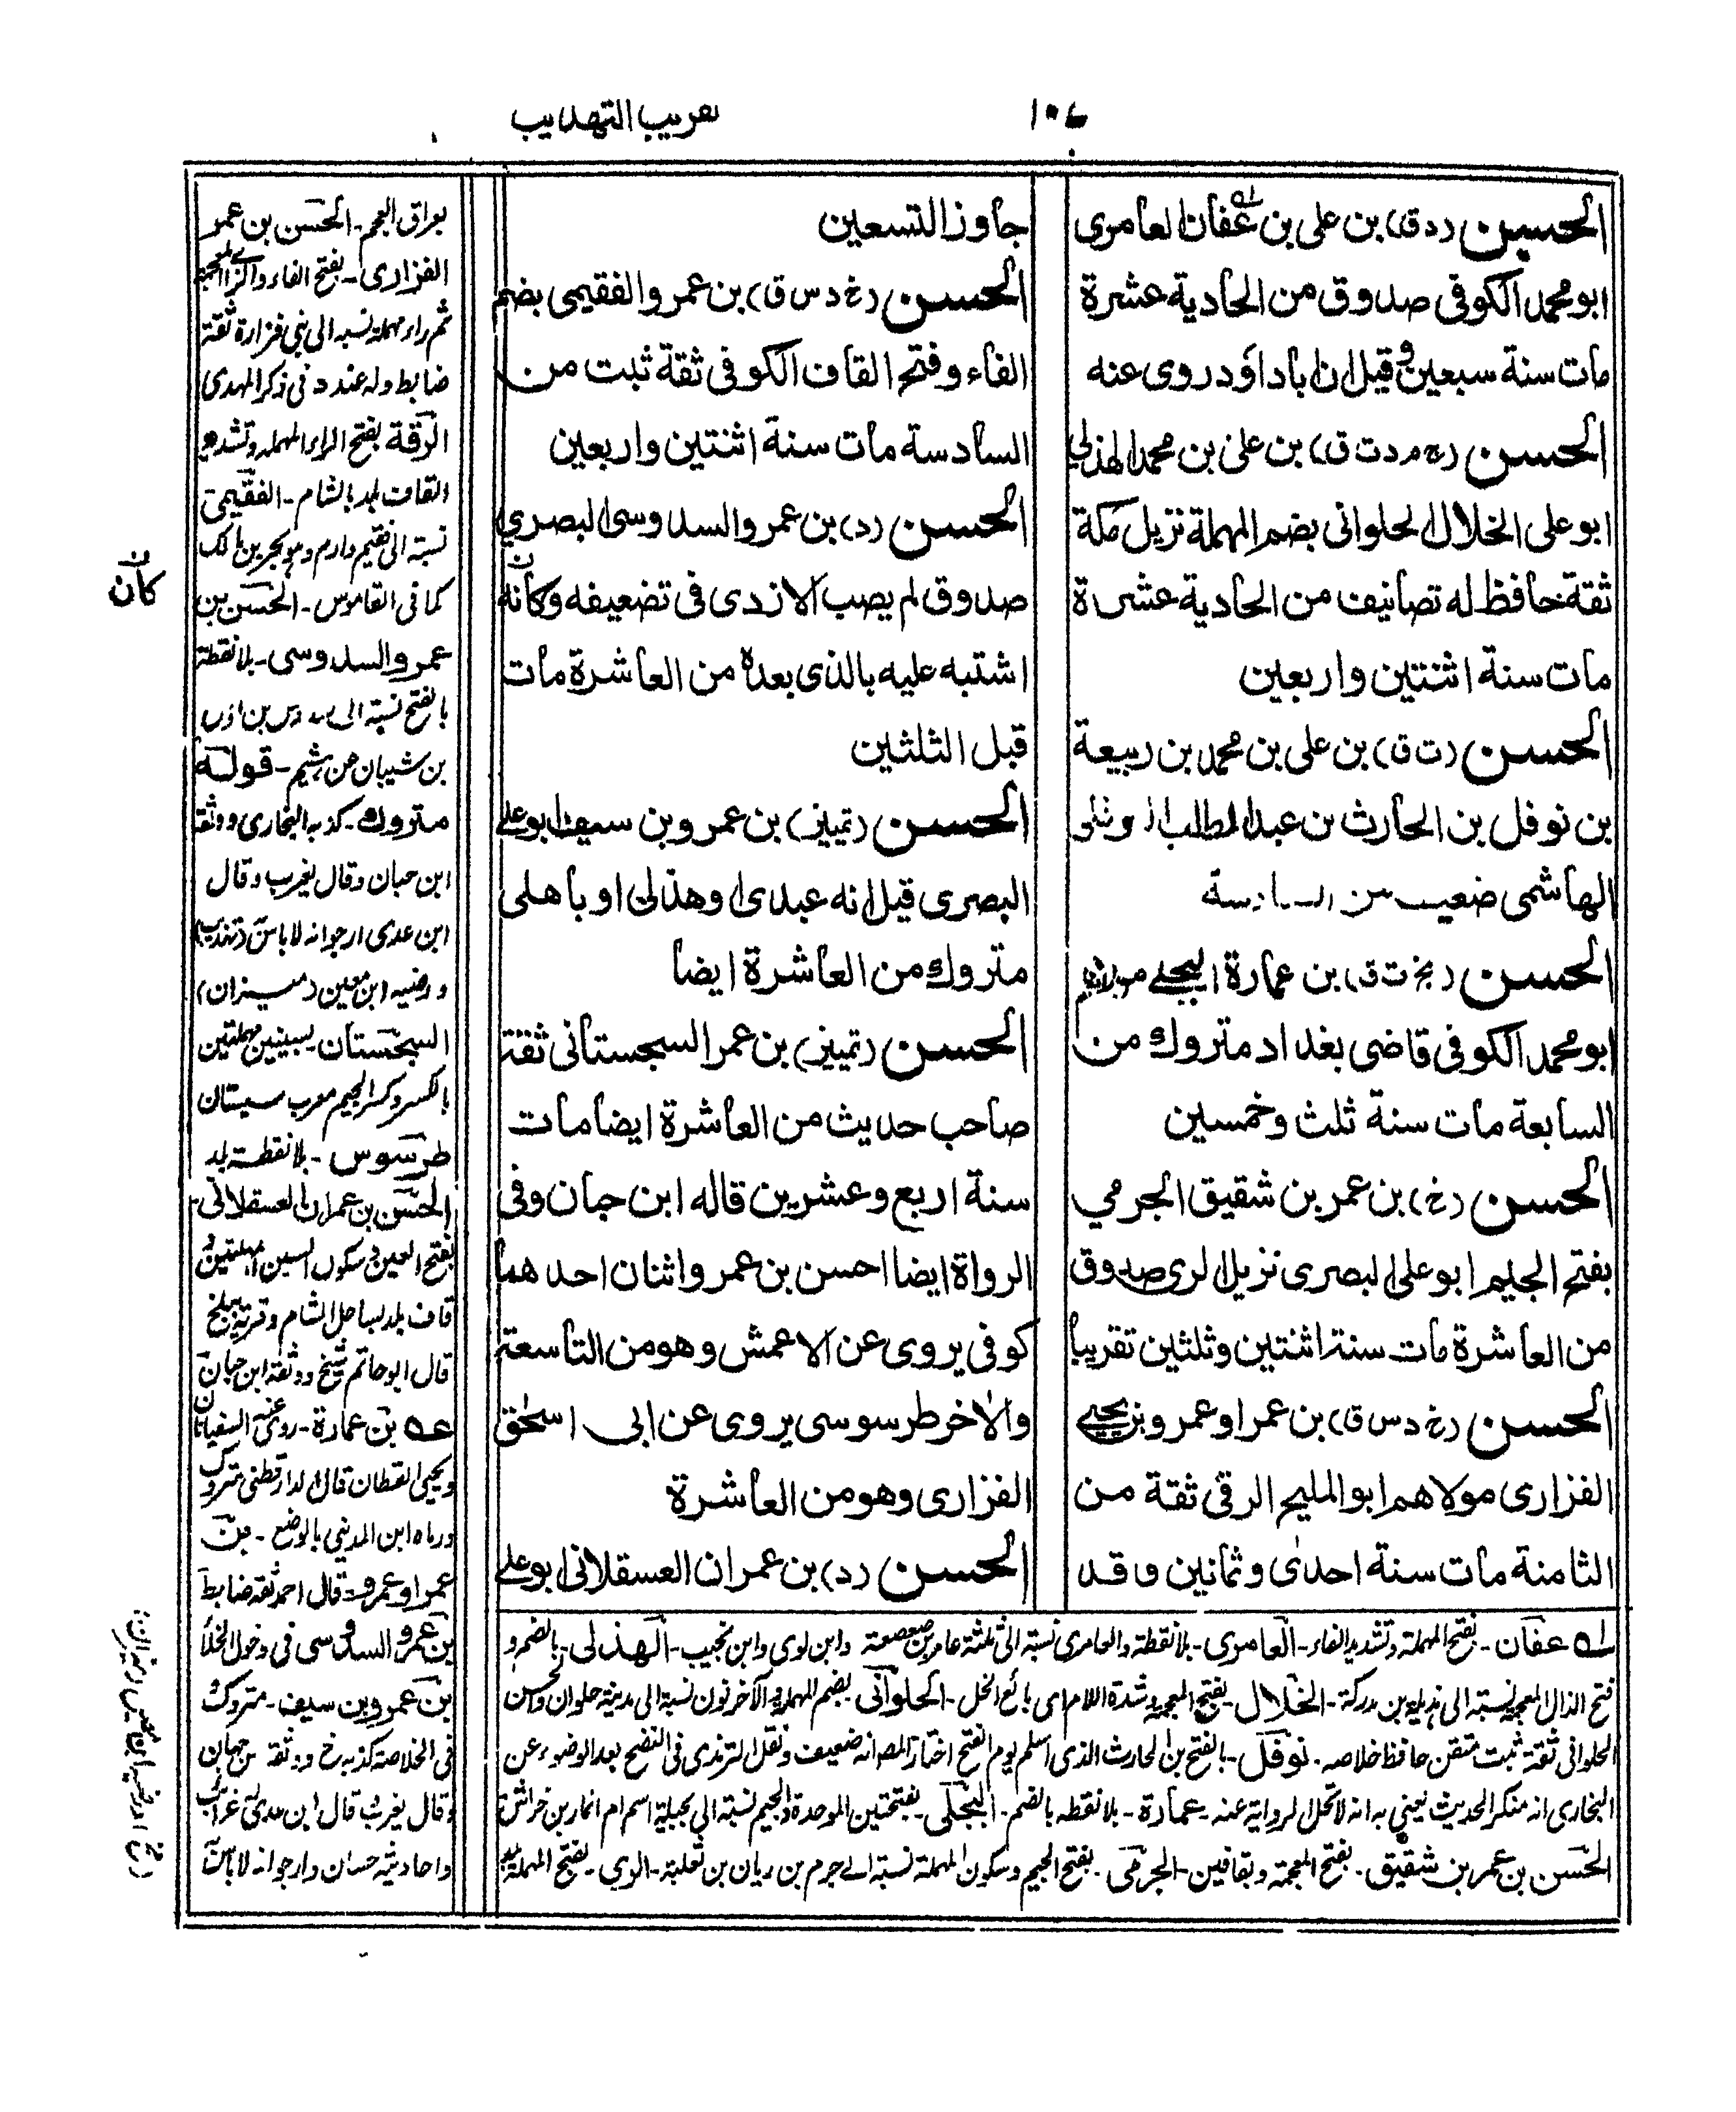 تقريب التهذيب
١٠٤
الحسن (د ق) بن علي بن عفان العامري
ابو محمد الكوفي صدوق من الحادية عشرة
مات سنة سبعين وقيل ان ابا داؤد روى عنه
الحسن (خ م د ت ق) بن علي بن محمد الهذلي
ابو علي الخلال الحلواني بضم المهملة نزيل مكة
ثقة حافظ له تصانيف من الحادية عشرة
مات سنة اثنتين واربعين
الحسن (ت ق) بن علي بن محمد بن ربيعة
بن نوفل بن الحارث بن عبد المطلب النوفلي
الهاشمي ضعيف من السادسة
الحسن (خت ت ق) بن عمارة البجلي مولاهم
ابو محمد الكوفي قاضي بغداد متروك من
السابعة مات سنة ثلث وخمسين
الحسن (خ) بن عمر بن شقيق الجرمي
بفتح الجيم ابو علي البصري نزيل الري صدوق
من العاشرة مات سنة اثنتين وثلثين تقريبا
الحسن (خ د س ق) بن عمر او عمرو بن يحيى
الفزاري مولاهم ابو المليح الرقي ثقة من
الثامنة مات سنة احدى وثمانين وقد
جاوز التسعين
الحسن (خ د س ق) بن عمرو الفقيمي بضم
الفاء وفتح القاف الكوفي ثقة ثبت من
السادسة مات سنة اثنتين واربعين
الحسن (د) بن عمرو السدوسي البصري
صدوق لم يصب الازدي في تضعيفه وكانه
اشتبه عليه بالذي بعده من العاشرة مات
قبل الثلثين
الحسن (تمييز) بن عمرو بن سيف ابو علي
البصري قيل انه عبدي او هذلي او باهلي
متروك من العاشرة ايضا
الحسن (تمييز) بن عمر السجستاني ثقة
صاحب حديث من العاشرة ايضا مات
سنة اربع وعشرين قاله ابن حبان وفي
الرواة ايضا احسن بن عمرو اثنان احدهما
كوفي يروي عن الاعمش وهو من التاسعة
والاخر طرسوسي يروي عن ابي اسحق
الفزاري وهو من العاشرة
الحسن (د) بن عمران العسقلاني ابو علي
عفان - بفتح المهملة وتشديد الفاء - العامري - بلا نقطة والعامري نسبة الى ثلثة عامر بن صعصعة وابن لوي وابن نجيب - الهذلي - بالضم و
فتح الذال المعجمة نسبة الى هذيل بن مدركة - الخلال - بفتح المعجمة وشدة اللام اي بائع الخل - الحلواني بضم المهملة والآخر نون نسبة الى مدينة حلوان والحسن
الحلواني ثقة ثبت متقن حافظ خلاصه - نوفل - بالفتح بن الحارث الذي اسلم يوم الفتح اختار المص انه ضعيف ونقل الترمذي في النضح بعد الوضوء عن
البخاري انه منكر الحديث يعني به انه لا تحل الرواية عنه - عمارة - بلا نقطه بالضم - البجلي - بفتحتين الموحدة والجيم نسبة الى بجيلة اسم ام انمار بن خراش
الحسن بن عمر بن شقيق - بفتح المعجمة وبقافين - الجرمي - بفتح الجيم وسكون المهملة نسبة الى جرم بن ريان بن ثعلبة - الري - بفتح المهملة بلد
بعراق العجم - الحسن بن عمر
الفزاري - بفتح الفاء والزاي المعجمة
ثم راء مهملة نسبة الى بني فزارة ثقة
ضابط وله عند د في ذكر المهدي
الرقة بفتح الراء المهملة وتشديد
القاف بلد بالشام - الفقيمي
نسبة الى فقيم دارم وهو بحر بن مالك
كما في القاموس - الحسن بن
عمرو السدوسي - بلا نقطة
بالفتح نسبة الى سدوس بن
بن شيبان - قوله
متروك - كذبه البخاري ووثقه
ابن حبان وقال يغرب وقال
ابن عدي ارجو انه لا باس (تهذيب)
ورضيه ابن معين (ميزان)
السجستان - بسينين مهملتين
بالكسر وكسر الجيم معرب سيستان
طرسوس - بلا نقطة بلد
الحسن بن عمران العسقلاني -
بفتح العين وسكون السين المهملتين
قاف بلد بساحل الشام وقرية ببلخ
قال ابو حاتم شيخ ووثقه ابن حبان
بن عمارة - روى عنه السفيانان
ويحيى القطان قال الدارقطني متروك
ورماه ابن المديني بالوضع - بن
عمر او عمرو - قال احمد ثقة ضابط
بن عمرو السدوسي في دخول الخلأ
بن عمرو بن سيف - متروك
في الخلاصة كذبه خ ووثقه بن حبان
وقال يغرب قال ابن عدي غرائب
واحاديثه حسان وارجو انه لا باس
كان